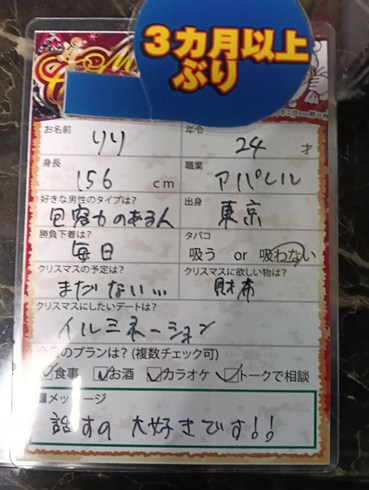 3カ月以上
ぶり
お名前 りり 年令 24 才
身長 156 cm 職業 アパレル
好きな男性のタイプは? 包容力のある人 出身 東京
勝負下着は? 毎日 タバコ 吸う or 吸わない
クリスマスの予定は? まだない... クリスマスに欲しい物は? 財布
クリスマスにしたいデートは?
イルミネーション
今日のプランは?(複数チェック可)
食事 お酒 カラオケ トークで相談
■メッセージ
話すの大好きです!!